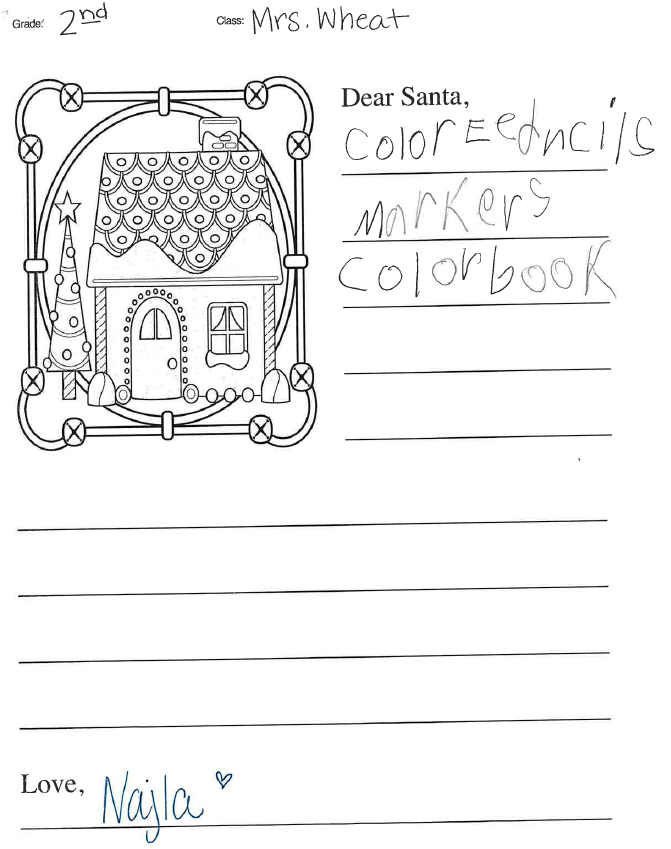 Grade: 2nd Class: Mrs. Wheat
Dear Santa,
colorEedncils
markers
colorbook
Love, Najla ♡